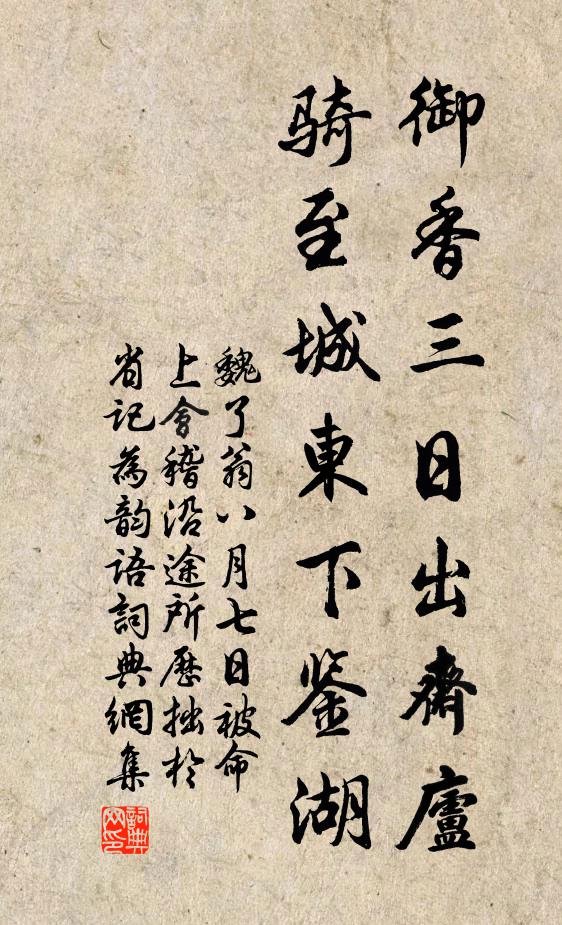 御香三日出齋廬
骑至城東下鉴湖
魏了翁八月七日被命
上會稽沿途所歷拙於
省记為韵语詞典網集
詞典
网印